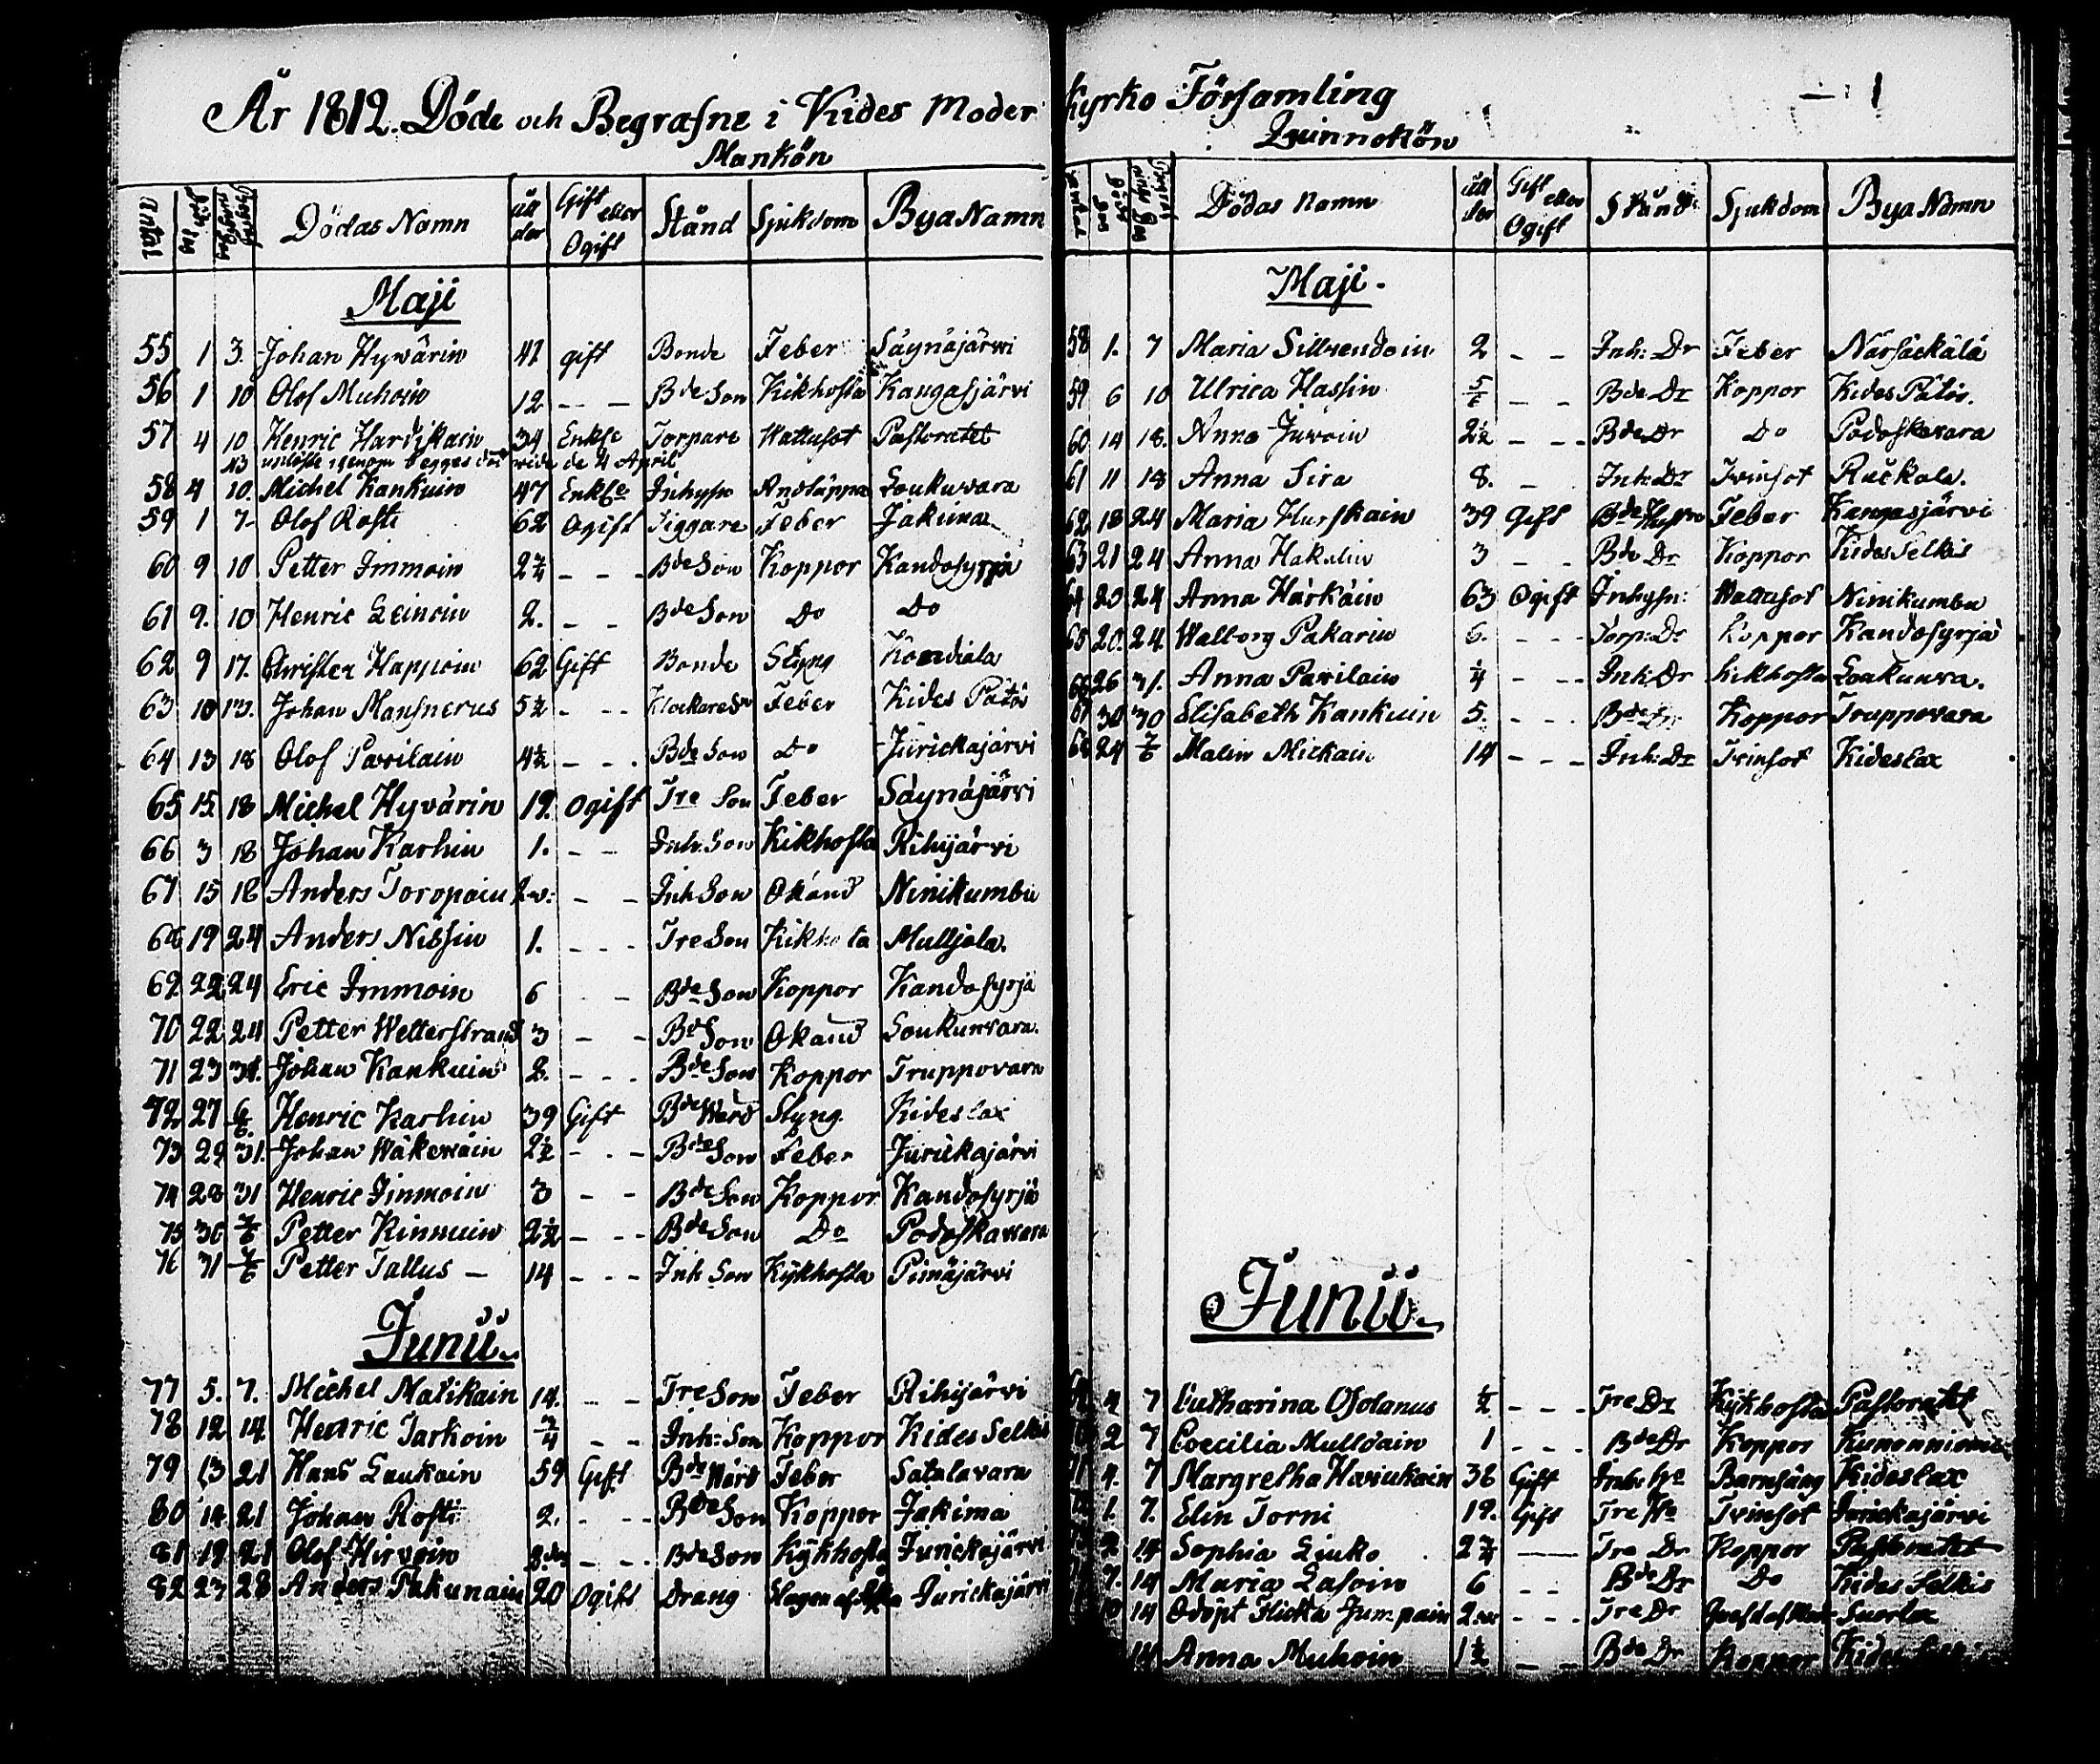 År 1812. Döde och Begrafne i Kides Moder
Mankön
Antal Död dag Dödas Namn Ålder Gift eller Ogift Stånd Sjukdom Bya Namn
Maji
55 1 3. Johan Hyvärin 41 gift Bonde Feber Säynäjärvi
56 1 10 Olof Muhoin 12 - - Bde Son Kikhosta Kangasjärvi
57 4 10 Henric Hardikain 34 Enkle Torpare Wattusot Pastoratet
de 4 April
58 4 10. Michel Kankuin 47 Enkle Inhyse Andtäppa Loukuvara
59 1 7- Olof Rosti 62 Ogift Tiggare Feber Jakima
60 9 10 Petter Immoin 2¼ - - - Bde Son Koppor Kandosyrjä
61 9. 10 Henric Leinoin 2. - - Bde Son Do Do
62 9 17. Christer Happoin 62 Gift Bonde Styng Koendiala
63 10 Johan Mansnerus 5½ - - - Feber Kides Pätös
64 13 18 Olof Pavilain 4½ - - . Bde Son Do Jurickajärvi
65 15 18 Michel Hyvärin 19. Ogift Tre Son Feber Säynäjärvi
66 3 18 Johan Karhin 1. - - Inh. Son Kikhosta Rihijärvi
67 15 18 Anders Toropain - - Inh Son Okänd Ninikumbu
68 19 24 Anders Nissin 1. - - - Tre Son Kikhosta Mulljola.
69 22 24 Eric Immoin 6 - - Bde Son Koppor Kandosyrjä
70 22 24 Petter Wetterstrand 3 - - Bde Son Okänd Loukunvara.
71 23 31. Johan Kankuin 2. - - - Bde Son Koppor Truppovara
72 27 6/6 Henric Karhin 39 Gift Bde Värd Styng. Kideslax
73 29 31. Johan Wäkeväin 2½ - . - Bde Son Feber Jurickajärvi
74 28 31 Henric Immoin 3 - - Bde Son Koppor Kandosyrjä
75 30 7/6 Petter Kinnuin 2½ - - - Bde Son Do Podoskavara
76 31 7/6 Petter Tallus - 14 - - - Inh Son Kykhosta Pimäjärvi
Junii.
77 5. 7. Michel Matikain 14. - - Tre Son Feber Rihijärvi
78 12 14. Henric Jarkoin ¾ - - Inh: Son Koppor Kides Selkis
79 13 21 Hans Laukain 59 Gift Bde Värd Feber Satulavara
80 14 21 Johan Rosti 2. - - - Bde Son Koppor Jakima
81 19 21 Olof Hirvoin - - . Bde Son Kykhosta Jurickajärvi
82 23 28 Anders Pakunain 20 Ogift Dräng Slagen af Jurickajärvi
Kyrko Församling
Qvinnokön
Död dag Dödas Namn Ålder Gift eller Ogift Stånd Sjukdom Bya Namn
Maji.
58 1. 7 Maria Sillvendoin 2 - - Inh: Dr Feber Närsäckälä
59 6 10 Ulrica Hassin - - Bde Dr Koppor Kides Pätös.
60 14 18. Anna Juvoin 2½ - - - Bde Dr Do Podoskavara
61 11 18 Anna Sira 8. - . Inh: Dr Tvinsot Ruckola.
62 18 24 Maria Hurskain 39 Gift Bde Hustru Feber Kangasjärvi
63 21 24 Anna Hakulin 3 - - Bde Dr Koppor Kides Selkis
64 20 24 Anna Härkäin 63 Ogift Inhysn: Wattusot Ninikumbu
65 20. 24. Walborg Pakarin 6. - - - Torp: Dr Koppor Kandosyrjä
66 26 31. Anna Pavilain ¼ - - - Inh: Dr Kikhosta Loukunvara.
67 30 30 Elisabeth Kankuin 5. - - - Bde Dr Koppor Truppovara
68 24 7/6 Malin Mickain 14 - - - Inh: Dr Tvinsot Kideslax
Junii.
4 7 Catharina Osolanus ½ - - - Tre Dr Kykhosta Pastoratet
2 7 Coecilia Mulloain 1 - - - Bde Dr Koppor
4. 7 Margretha Haviukain 36 Gift Barnsäng Kideslax
1. 7. Elin Torni 19. Gift Tre Tvinsot Jurickajärvi
2 14 Sophia Liuko 2¾ — Tre Dr Koppor Pastoratet
7. 14 Maria Lasoin 6 - - Bde Dr Do Kides Selkis
10 14 Odöpt Flicka Jumpain - - - Tre Dr Suorlax
14 Anna Muhoin 1½ - - Bde Dr Koppor Kides